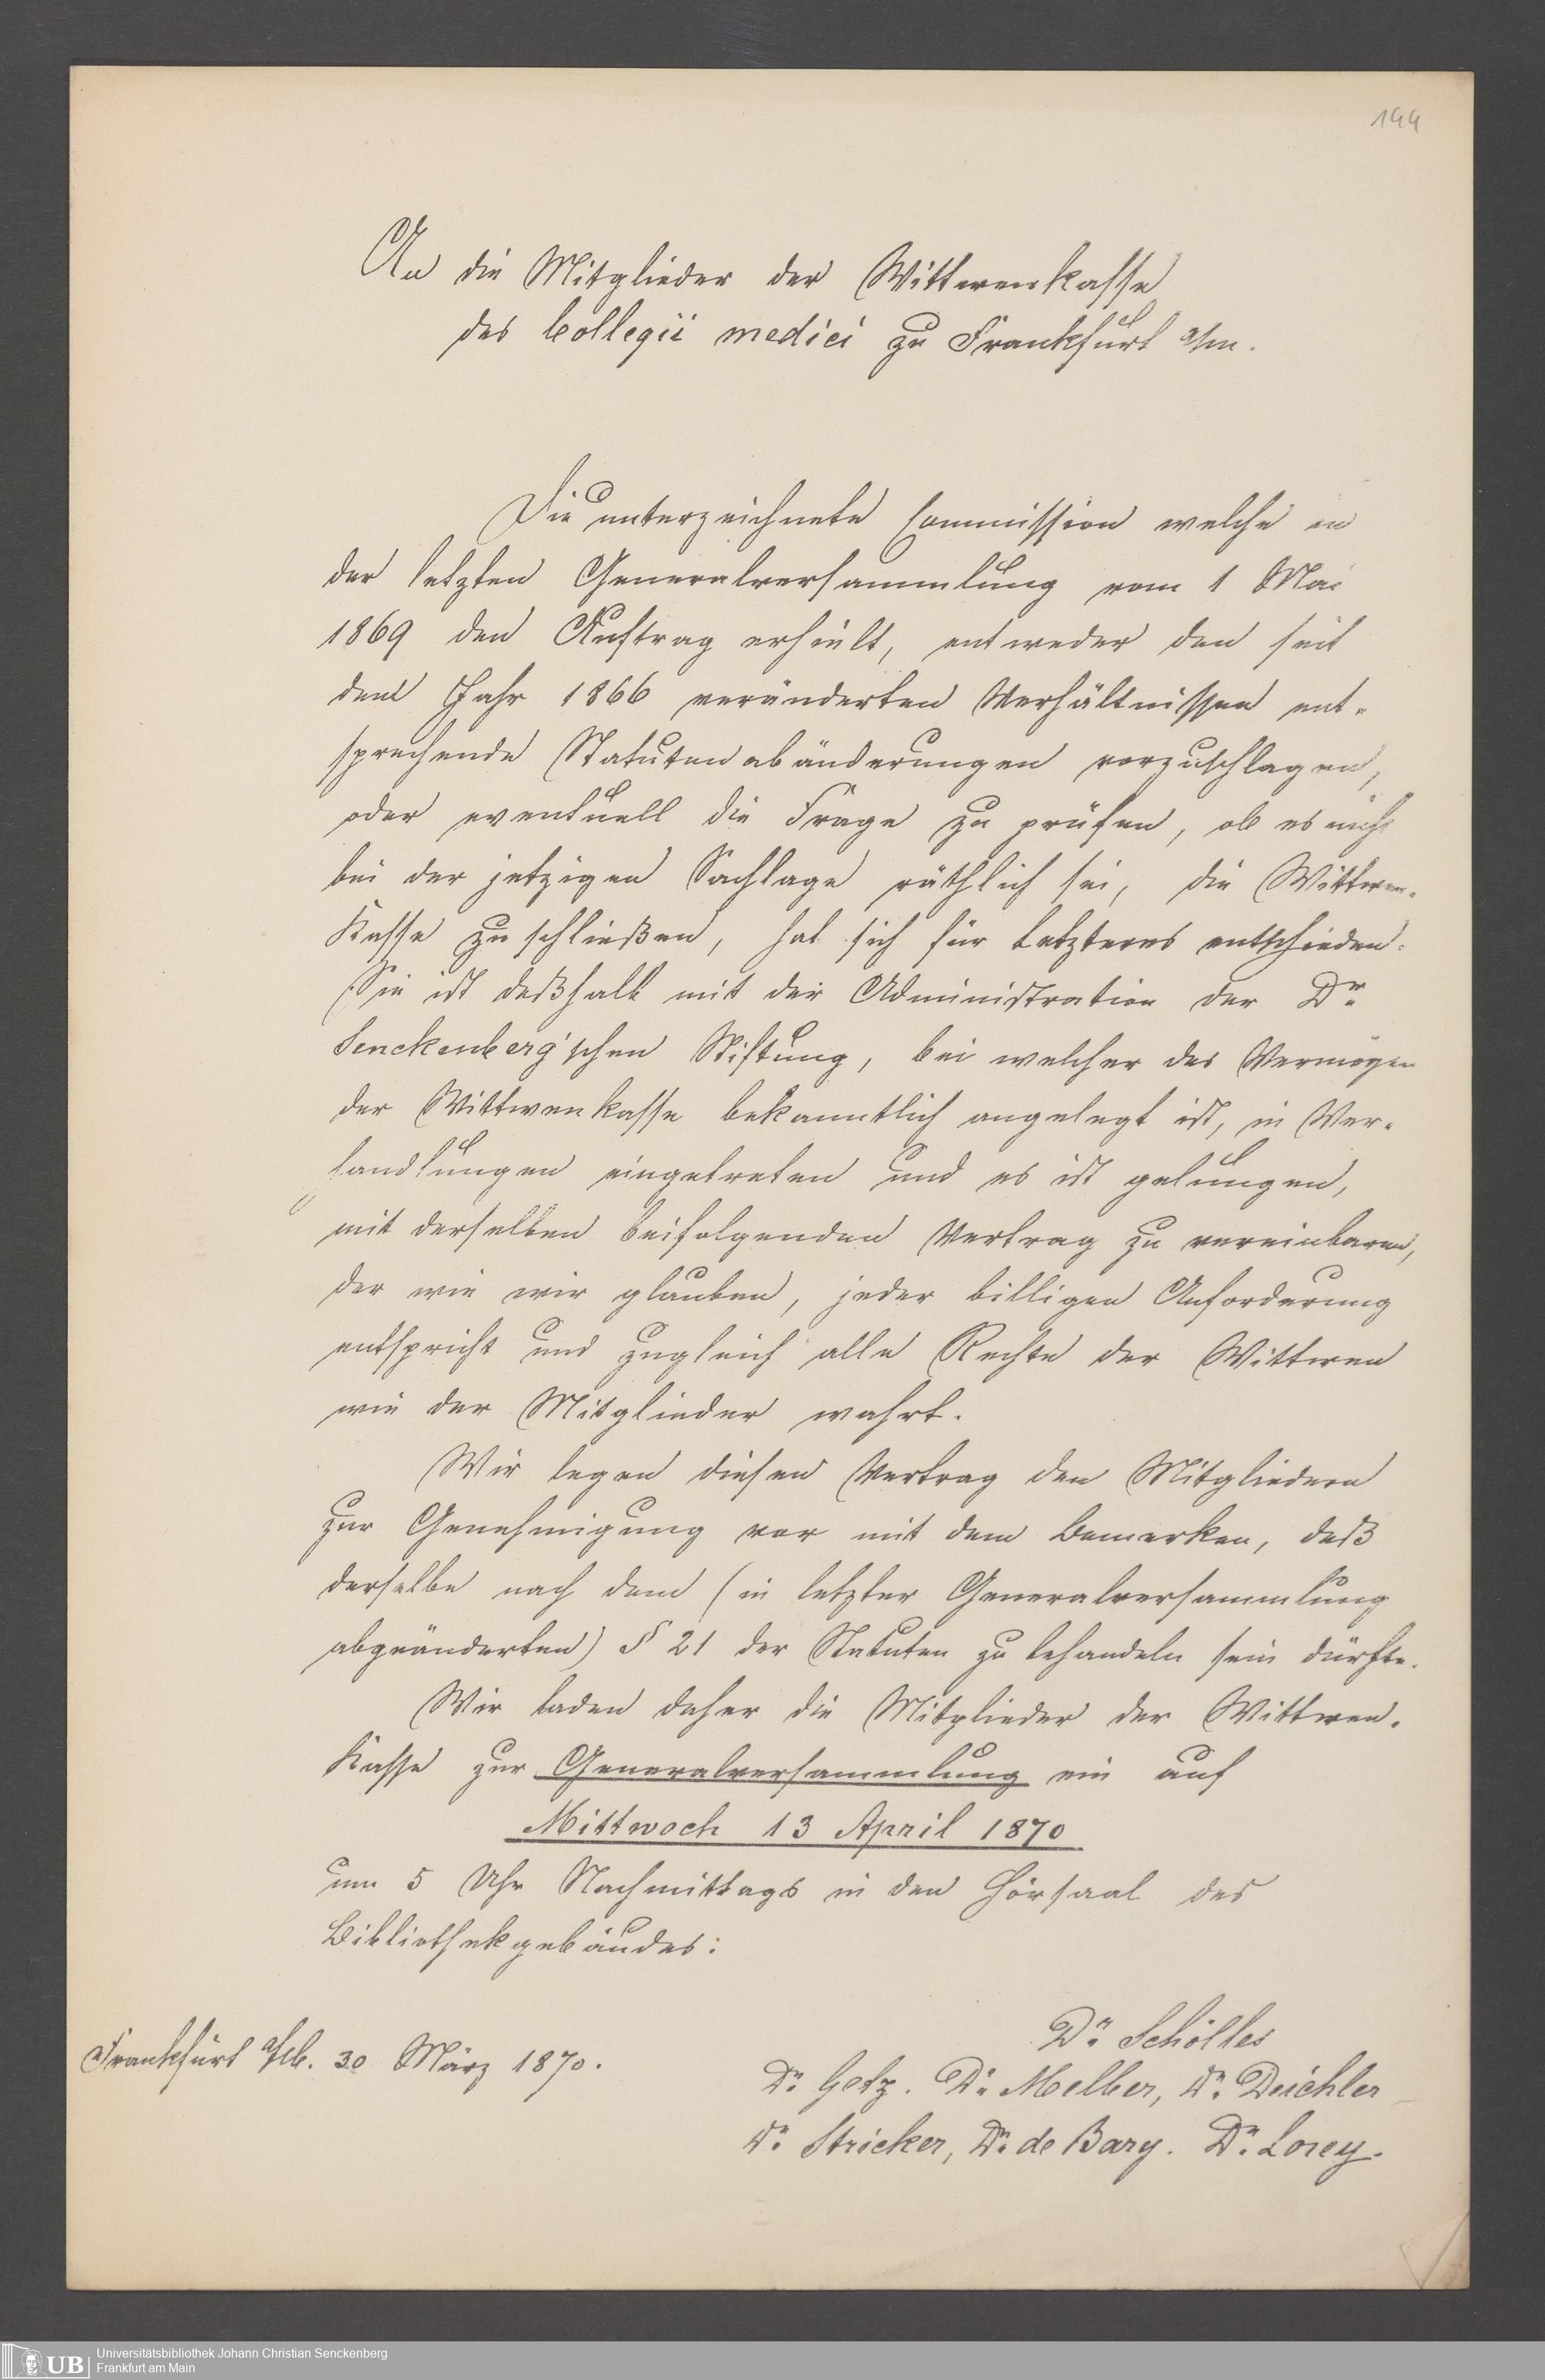 144
An die Mitglieder der Wittwenkasse
des Collegii medici zu Frankfurt a/m.
Die unterzeichnete Commission welche in
der letzten Generalversammlung vom 1 Mai
1869 den Auftrag erhielt, entweder den seit
dem Jahr 1866 veränderten Verhältnissen ent-
sprechende Statutenabänderungen vorzuschlagen,
oder eventuell die Frage zu prüfen, ob es nicht
bei der jetzigen Sachlage räthlich sei, die Wittwen-
Kasse zu schließen, hat sich für Letzteres entschieden.
Sie ist deßhalb mit der Administration der Dr
Senckenberg'schen Stiftung, bei welcher das Vermögen
der Wittwenkasse bekanntlich angelegt ist, in Ver-
handlungen eingetreten und es ist gelungen,
mit derselben beifolgenden Vertrag zu vereinbaren,
der wie wir glauben, jeder billigen Anforderung
entspricht und zugleich alle Rechte der Wittwen
wie der Mitglieder wahrt.
Wir legen diesen Vertrag den Mitgliedern
zur Genehmigung vor mit dem Bemerken, daß
derselbe nach dem (in letzter Generalversammlung
abgeänderten) § 21 der Statuten zu behandeln sein dürfte.
Wir laden daher die Mitglieder der Wittwen-
Kasse zur Generalversammlung ein auf
Mittwoch 13 April 1870
um 5 Uhr Nachmittags in den Hörsaal des
Bibliothekgebäudes:
Frankfurt a/M. 30 März 1870.
Dr. Schölles
Dr. Getz. Dr. Melber, Dr. Deichler
Dr. Stricker, Dr. de Bary. Dr. Lorey.
UB
Universitätsbibliothek Johann Christian Senckenberg
Frankfurt am Main